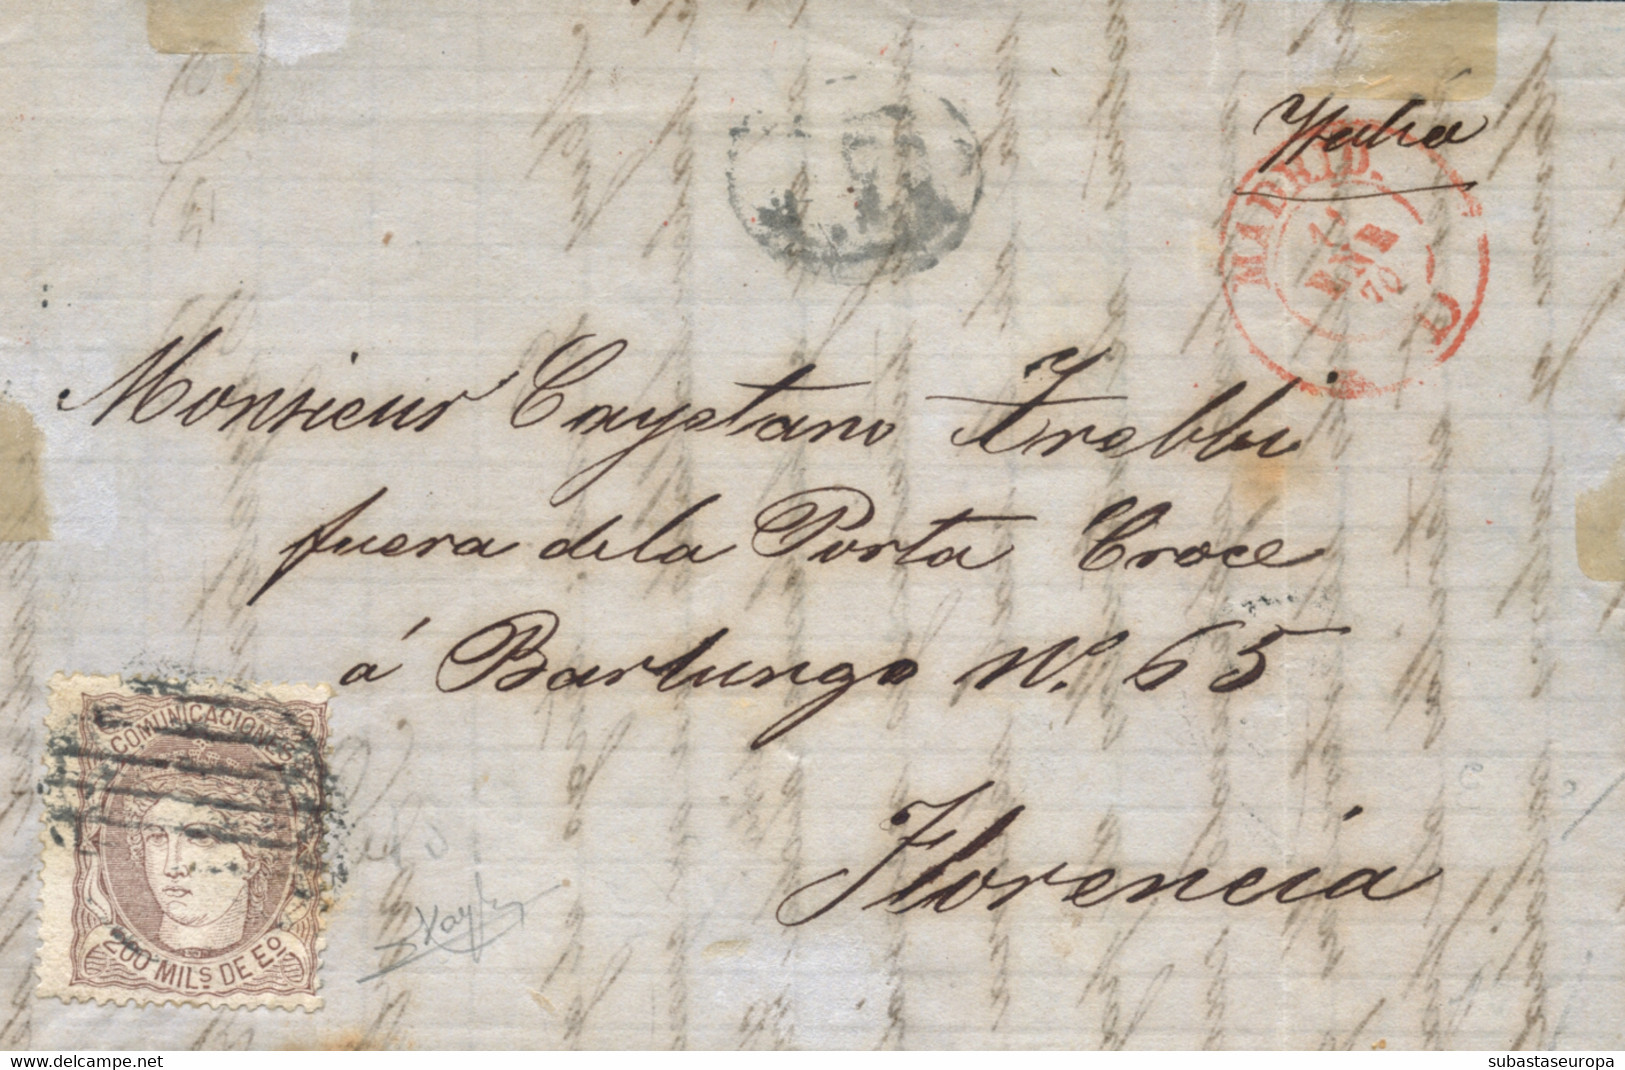 Italia
P.D.
MADRID.
ENE
70
Monsieur Cayetano Trebbi
fuera de la Porta Croce
á Barlungo No. 65
Florencia
COMUNICACIONES
200 MILS DE EO
delcampe.net
subastaseuropa